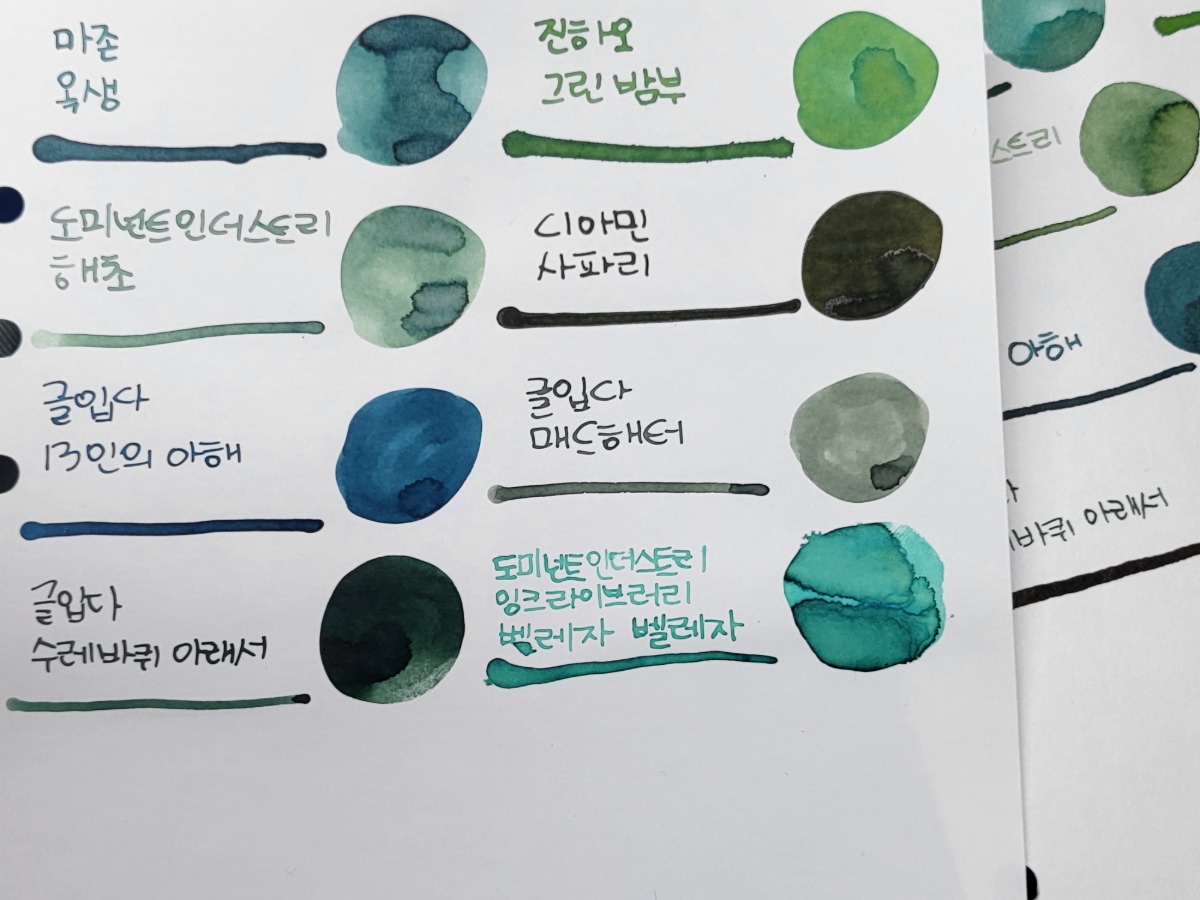 마존
옥생
진하오
그린 밤부
도미넌트인더스트리
해초
디아민
사파리
글입다
13인의 아해
글입다
매드해터
글입다
수레바퀴 아래서
도미넌트인더스트리
잉크라이브러리
벨레자 벨레자
스트리
아해
바퀴 아래서